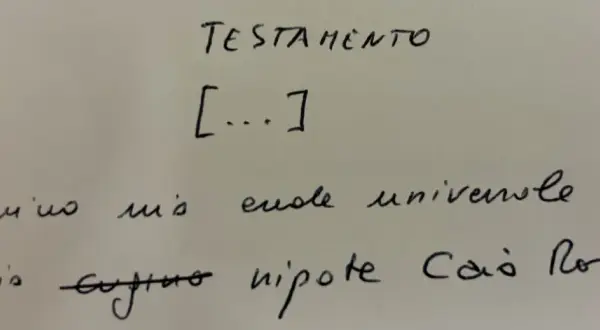 TESTAMENTO
[...]
mino mio erede universale
io cugino nipote Caio Ro